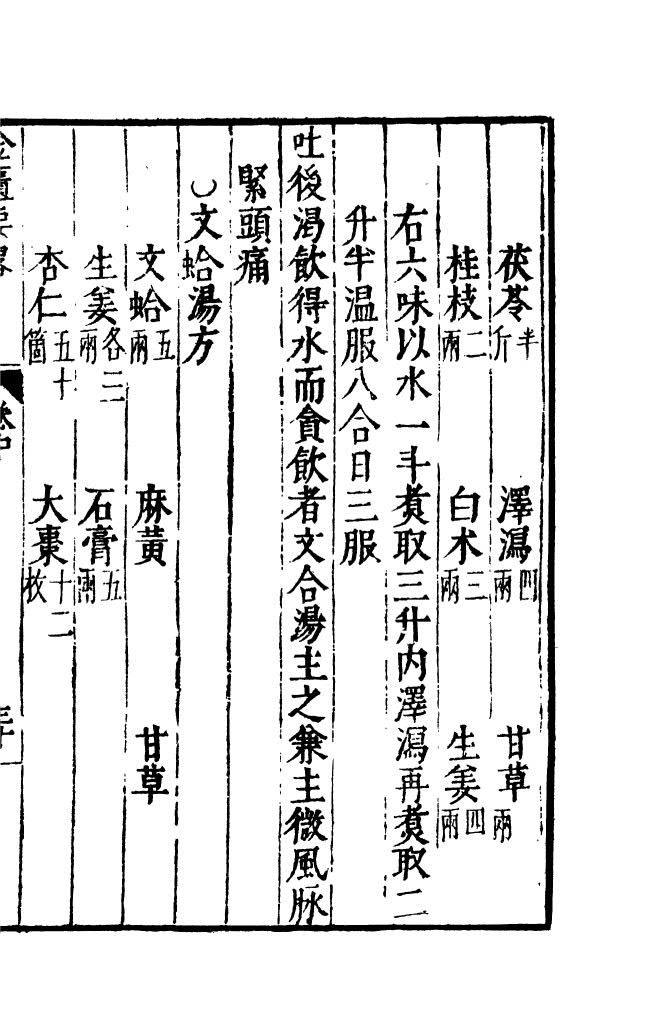 茯苓半斤　澤瀉四兩　甘草兩
桂枝二兩　白术三兩　生姜四兩
右六味以水一斗煑取三升内澤瀉再煑取二
升半温服八合日三服
吐後渴飲得水而貪飲者文合湯主之兼主微風脉
緊頭痛
文蛤湯方
文蛤五兩　麻黃　甘草
生姜各三兩　石膏五兩
杏仁五十箇　大棗十二枚